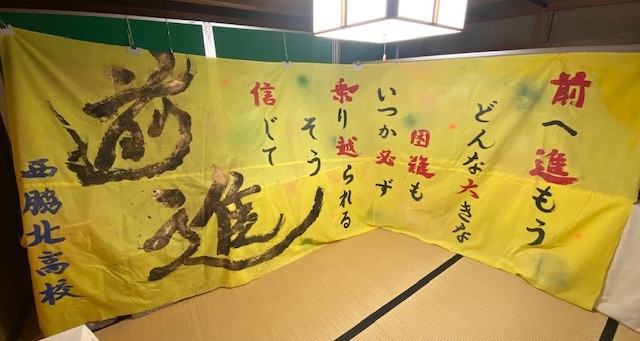 前へ進もう
どんな大きな
困難も
いつか必ず
乗り越られる
そう
信じて
前進
西脇北高校